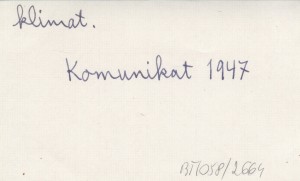 klimat.
Komunikat 1947
BT1058/2664